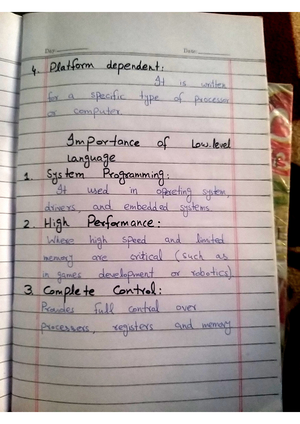 Day: Date:
4. Platform dependent:
It is written
for a specific type of processor
or computer
Importance of Low-level
language
1. System Programming:
It used in operting system,
drivers, and embedded systems.
2. High Performance:
Where high speed and limited
memory are critical (such as
in games development or robotics).
3. Complete Control:
Provides full control over
processers, registers and memory